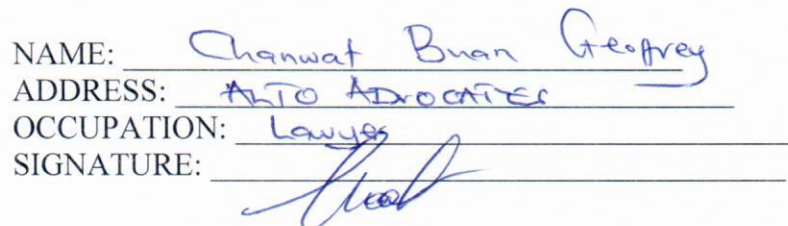 NAME: Chanwat Brian Geoffrey
ADDRESS: ALTO ADVOCATES
OCCUPATION: Lawyer
SIGNATURE: